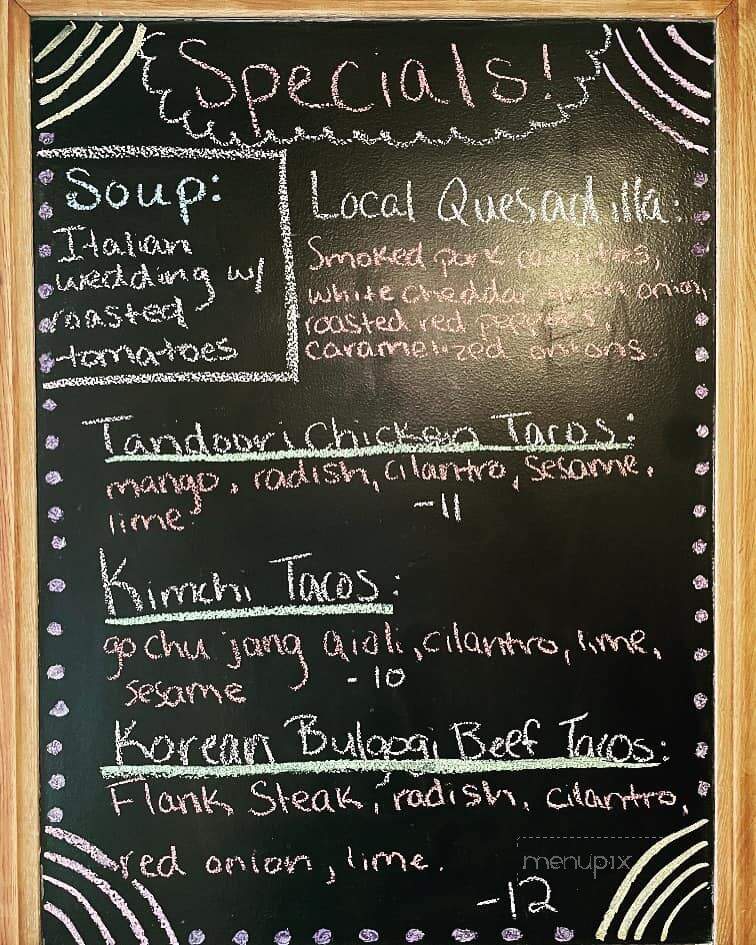 Specials!
Soup:
Italian
wedding w/
roasted
tomatoes
Local Quesadilla:
Smoked pork carnitas,
white cheddar, green onion,
roasted red peppers,
caramelized onions.
Tandoori Chicken Tacos:
mango, radish, cilantro, sesame,
lime
-11
Kimchi Tacos:
go chu jang aioli, cilantro, lime,
sesame
-10
Korean Bulgogi Beef Tacos:
Flank Steak, radish, cilantro,
red onion, lime.
-12
menupix